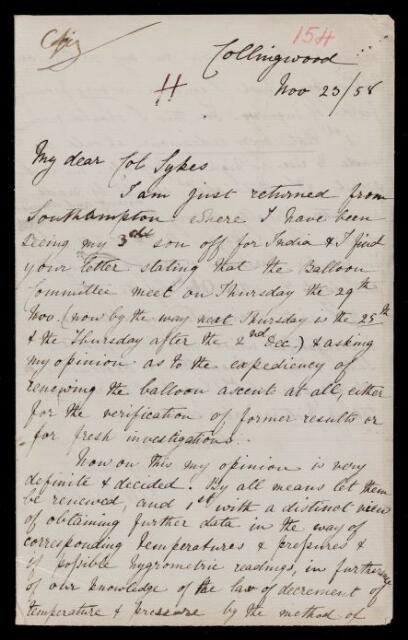 Copy
154
Collingwood
H
Nov 23/58
My dear Col Sykes
I am just returned from
Southampton where I have been
seeing my 3rd son off for India & I find
your letter stating that the Balloon
Committee meet on Thursday the 29th
Nov. (now by the way next Thursday is the 25th
& the Thursday after the 2nd Dec.) & asking
my opinion as to the expediency of
renewing the balloon ascent at all, either
for the verification of former results or
for fresh investigations.
Now on this my opinion is very
definite & decided. By all means let them
be renewed, and 1st with a distinct view
of obtaining further data in the way of
corresponding temperatures & pressures &
if possible hygrometric readings, in furtherance
of our knowledge of the law of decrement of
temperature & pressure by the method of